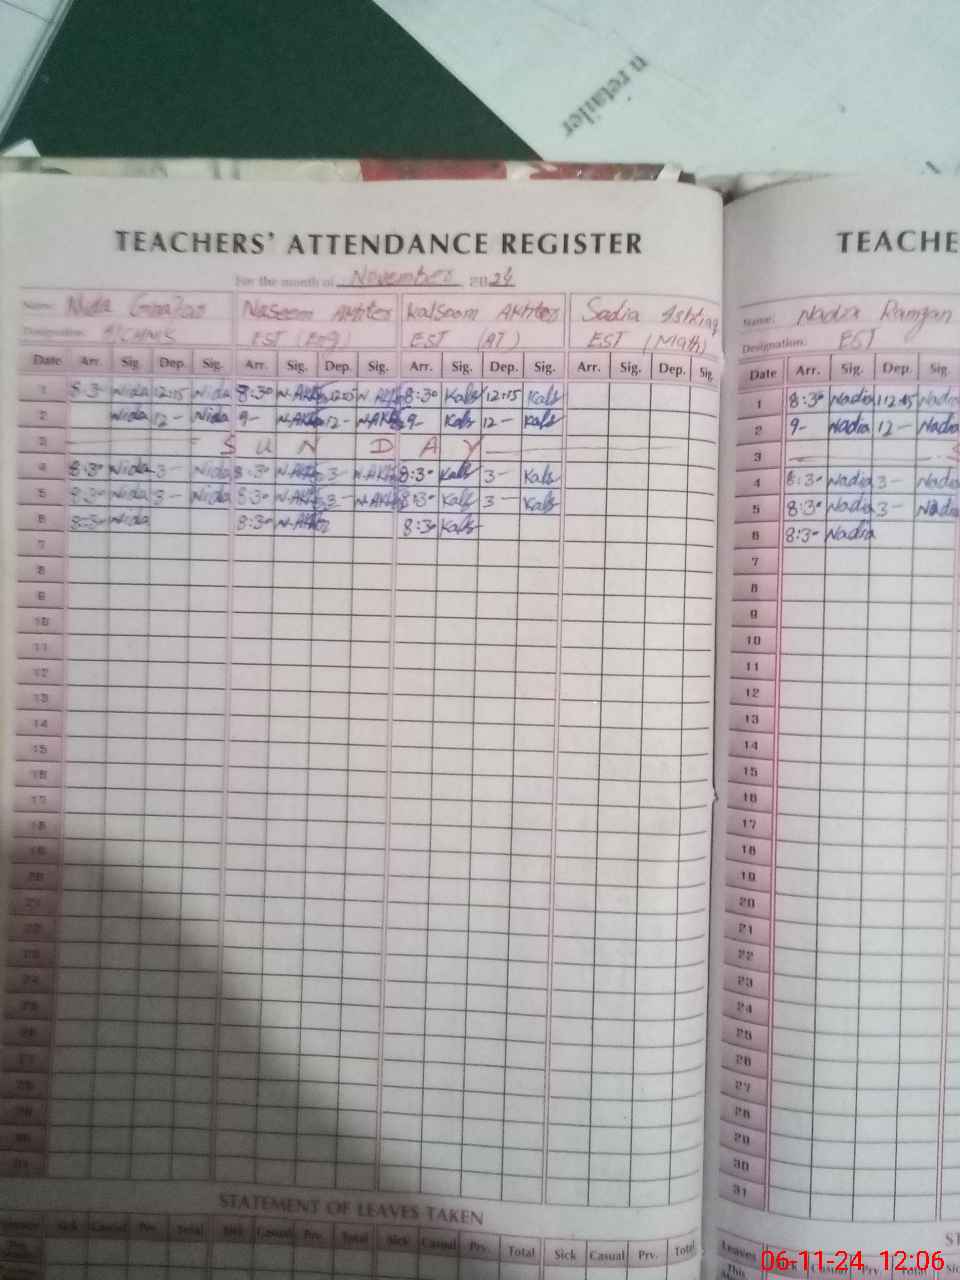 n retailer
TEACHERS' ATTENDANCE REGISTER
For the month of November 2024
Name: Nida Naseem Akhter Kalsoom Akhter Sadia Ishtiaq
Designation: EST (Eng) EST (AT) EST (Math)
Date Arr. Sig. Dep. Sig. Arr. Sig. Dep. Sig. Arr. Sig. Dep. Sig. Arr. Sig. Dep. Sig.
1 8:30 Nida 12:15 Nida 8:30 N.Akh 12:15 N.Akh 8:30 Kals 12:15 Kals
2 Nida 12- Nida 9- N.Akh 12- N.Akh 9- Kals 12- Kals
3 SUNDAY
4 8:30 Nida 3- Nida 8:30 N.Akh 3- N.Akh 8:30 Kals 3- Kals
5 8:30 Nida 3- Nida 8:30 N.Akh 3- N.Akh 8:30 Kals 3- Kals
6 8:30 Nida 8:30 N.Akh 8:30 Kals
7
8
9
10
11
12
13
14
15
16
17
18
19
20
21
22
23
24
25
26
27
28
29
30
31
STATEMENT OF LEAVES TAKEN
Sick Casual Prv. Total Sick Casual Prv. Total Sick Casual Prv. Total Sick Casual Prv. Total
TEACHE
Name: Nadia Ramzan
Designation: EST
Date Arr. Sig. Dep. Sig.
1 8:30 Nadia 12:15 Nadia
2 9- Nadia 12- Nadia
3 S
4 8:30 Nadia 3- Nadia
5 8:30 Nadia 3- Nadia
6 8:30 Nadia
7
8
9
10
11
12
13
14
15
16
17
18
19
20
21
22
23
24
25
26
27
28
29
30
31
ST
Leaves Sick Casual Prv. Total
This
06-11-24 12:06